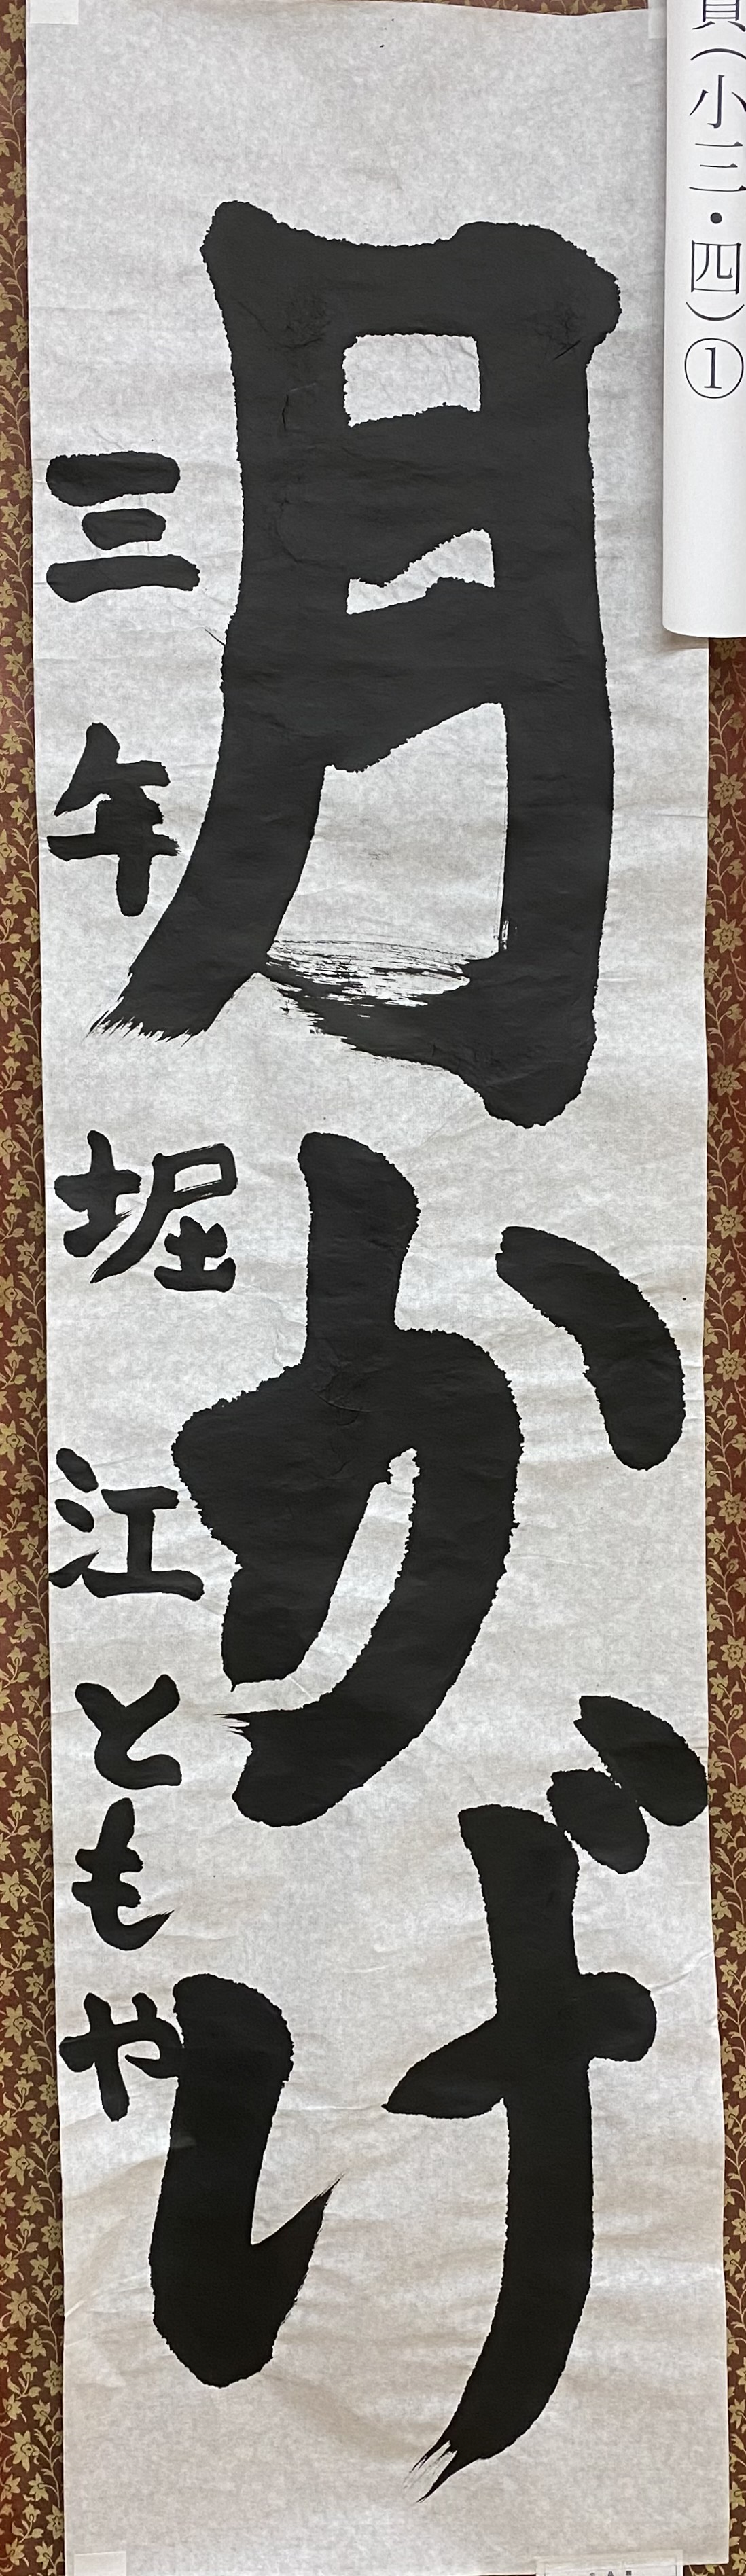 員(小三・四)①
月かげ
三年 堀江ともや